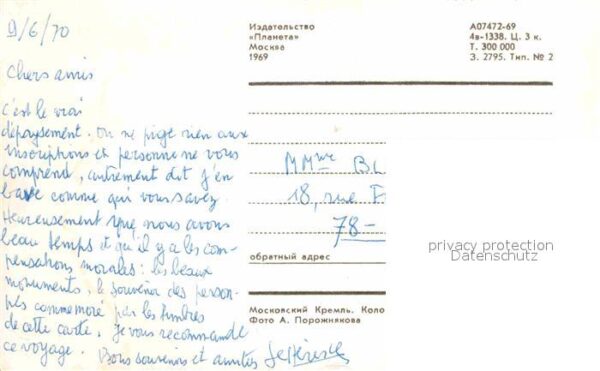 9/6/70
Chers amis
c'est le vrai
dépaysement. On ne pige rien aux
inscriptions et personne ne vous
comprend, autrement dit j'en
bave comme qui vous savez.
Heureusement que nous avons
beau temps et qu'il y a les com-
pensations morales : les beaux
monuments, le souvenir des
commémoré par les timbres
de cette carte. Je vous recommande
ce voyage. Bons souvenirs et amitiés
Издательство
«Планета»
Москва
1969
А07472-69
4в-1338. Ц. 3 к.
Т. 300 000
З. 2795. Тип. № 2
MMme BL
18, rue
78-
privacy protection
Datenschutz
обратный адрес
Московский Кремль. Коло
Фото А. Порожнякова